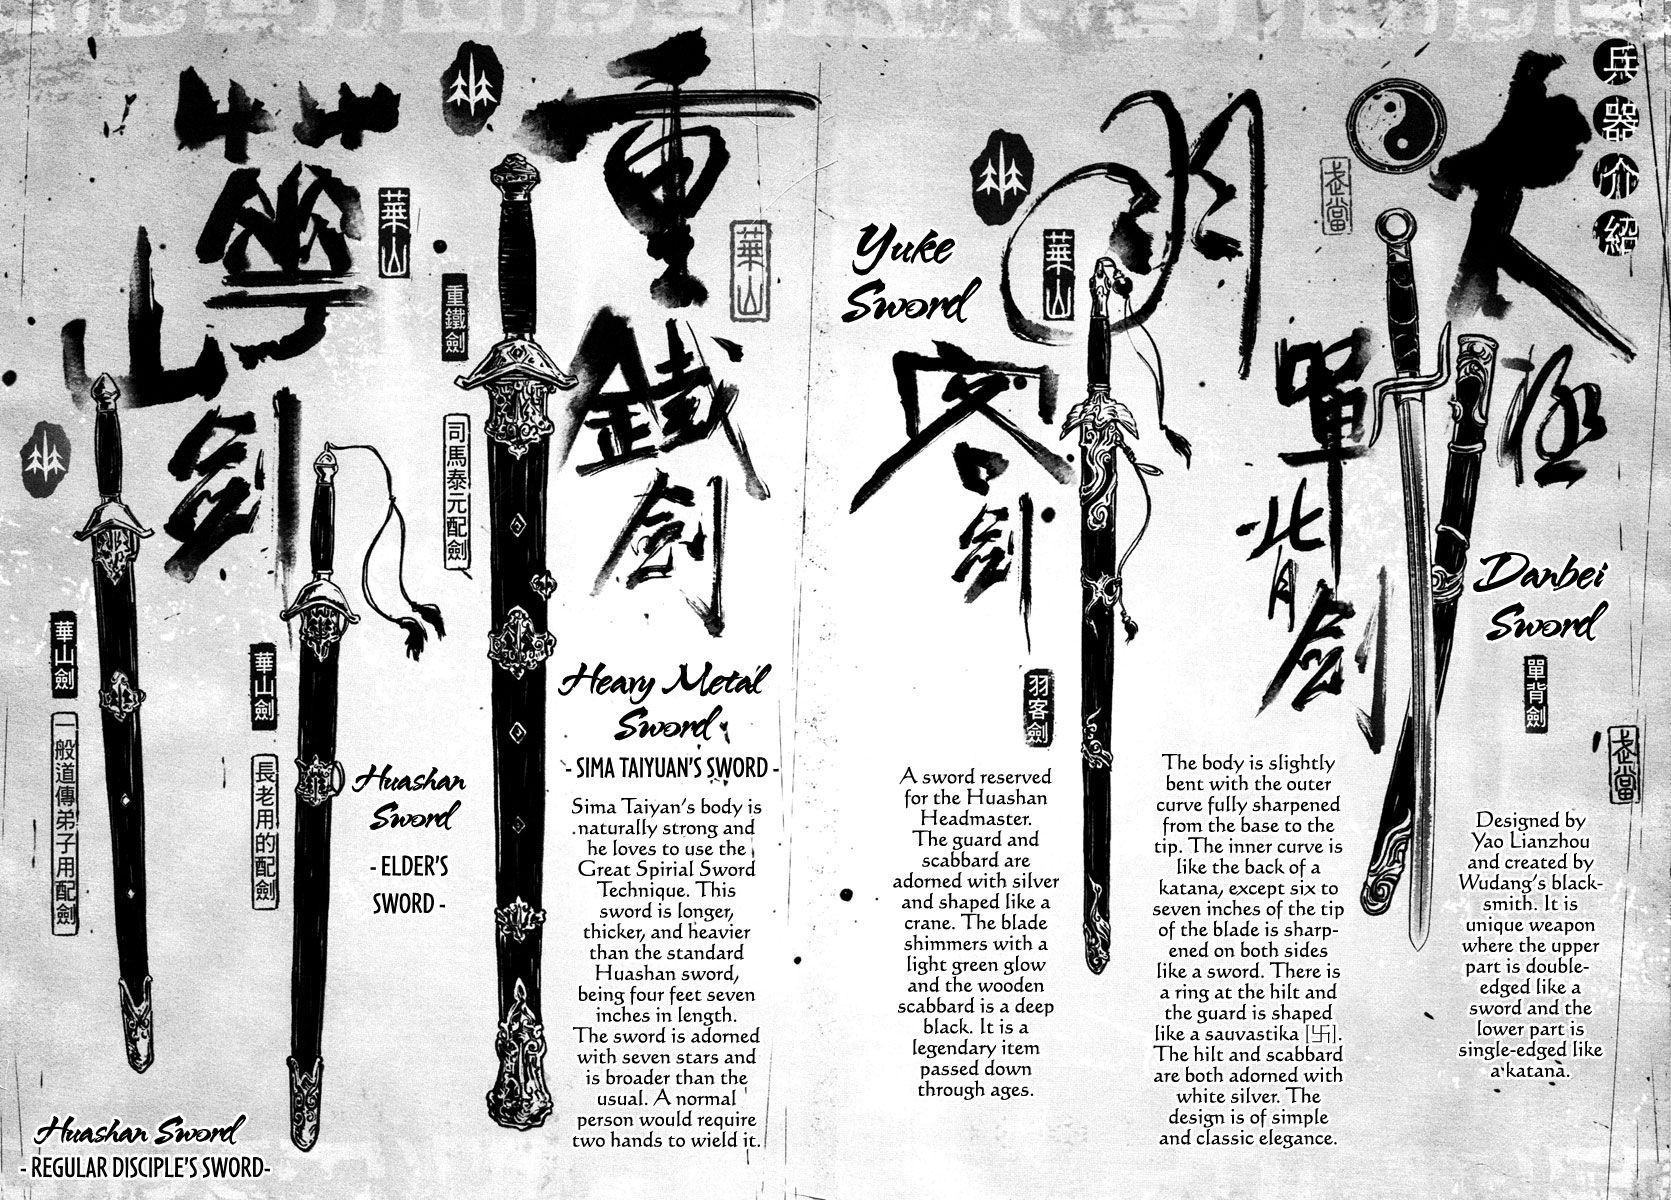 兵器介紹
太極
單背劍
武當
Danbei
Sword
單背劍
武當
Designed by
Yao Lianzhou
and created by
Wudang's black-
smith. It is
unique weapon
where the upper
part is double-
edged like a
sword and the
lower part is
single-edged like
a katana.
The body is slightly
bent with the outer
curve fully sharpened
from the base to the
tip. The inner curve is
like the back of a
katana, except six to
seven inches of the tip
of the blade is sharp-
ened on both sides
like a sword. There is
a ring at the hilt and
the guard is shaped
like a sauvastika [卐].
The hilt and scabbard
are both adorned with
white silver. The
design is of simple
and classic elegance.
羽客劍
華山
Yuke
Sword
羽客劍
A sword reserved
for the Huashan
Headmaster.
The guard and
scabbard are
adorned with silver
and shaped like a
crane. The blade
shimmers with a
light green glow
and the wooden
scabbard is a deep
black. It is a
legendary item
passed down
through ages.
重鐵劍
華山
重鐵劍
司馬泰元配劍
Heavy Metal
Sword
- SIMA TAIYUAN'S SWORD -
Sima Taiyan's body is
naturally strong and
he loves to use the
Great Spirial Sword
Technique. This
sword is longer,
thicker, and heavier
than the standard
Huashan sword,
being four feet seven
inches in length.
The sword is adorned
with seven stars and
is broader than the
usual. A normal
person would require
two hands to wield it.
華山劍
華山
華山劍
長老用的配劍
Huashan
Sword
- ELDER'S
SWORD -
華山劍
一般道傳弟子用配劍
Huashan Sword
- REGULAR DISCIPLE'S SWORD-